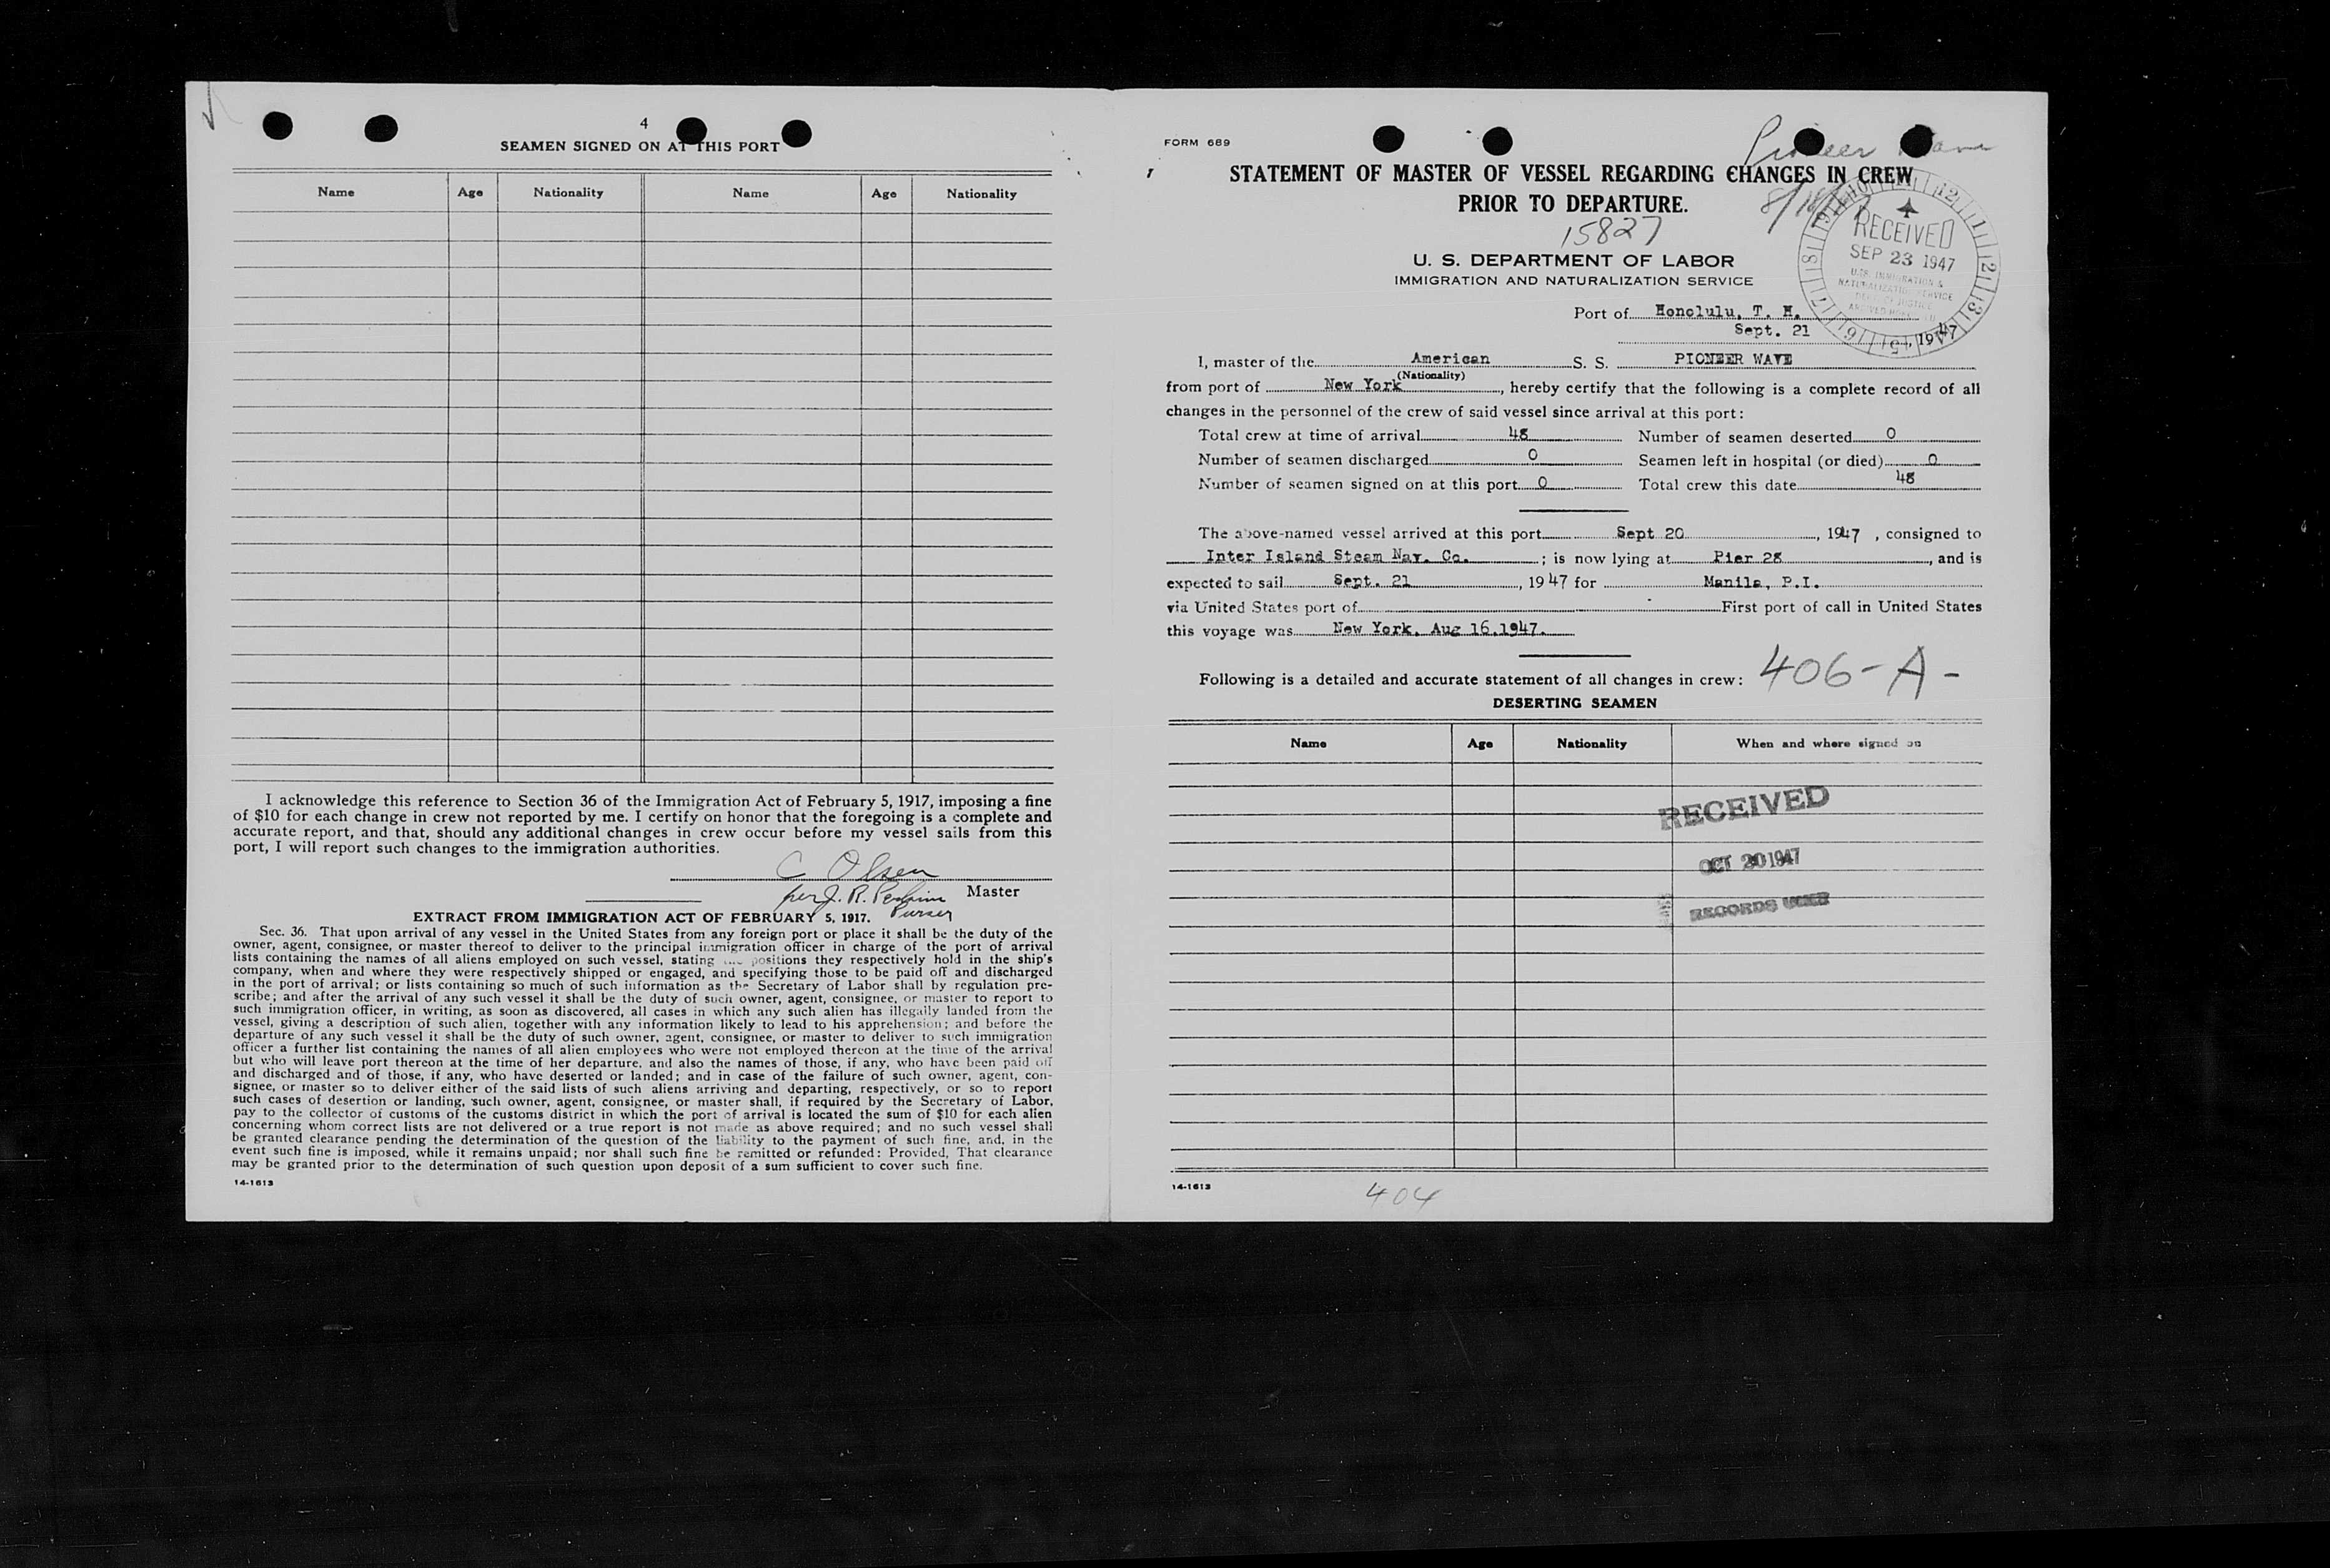 4
SEAMEN SIGNED ON AT THIS PORT
Name Age Nationality Name Age Nationality
I acknowledge this reference to Section 36 of the Immigration Act of February 5, 1917, imposing a fine
of $10 for each change in crew not reported by me. I certify on honor that the foregoing is a complete and
accurate report, and that, should any additional changes in crew occur before my vessel sails from this
port, I will report such changes to the immigration authorities.
C Olsen
per J. R. Perkins Master
Purser
EXTRACT FROM IMMIGRATION ACT OF FEBRUARY 5, 1917.
Sec. 36. That upon arrival of any vessel in the United States from any foreign port or place it shall be the duty of the
owner, agent, consignee, or master thereof to deliver to the principal immigration officer in charge of the port of arrival
lists containing the names of all aliens employed on such vessel, stating the positions they respectively hold in the ship's
company, when and where they were respectively shipped or engaged, and specifying those to be paid off and discharged
in the port of arrival; or lists containing so much of such information as the Secretary of Labor shall by regulation pre-
scribe; and after the arrival of any such vessel it shall be the duty of such owner, agent, consignee, or master to report to
such immigration officer, in writing, as soon as discovered, all cases in which any such alien has illegally landed from the
vessel, giving a description of such alien, together with any information likely to lead to his apprehension; and before the
departure of any such vessel it shall be the duty of such owner, agent, consignee, or master to deliver to such immigration
officer a further list containing the names of all alien employees who were not employed thereon at the time of the arrival
but who will leave port thereon at the time of her departure, and also the names of those, if any, who have been paid off
and discharged and of those, if any, who have deserted or landed; and in case of the failure of such owner, agent, con-
signee, or master so to deliver either of the said lists of such aliens arriving and departing, respectively, or so to report
such cases of desertion or landing, such owner, agent, consignee, or master shall, if required by the Secretary of Labor,
pay to the collector of customs of the customs district in which the port of arrival is located the sum of $10 for each alien
concerning whom correct lists are not delivered or a true report is not made as above required; and no such vessel shall
be granted clearance pending the determination of the question of the liability to the payment of such fine, and, in the
event such fine is imposed, while it remains unpaid; nor shall such fine be remitted or refunded: Provided, That clearance
may be granted prior to the determination of such question upon deposit of a sum sufficient to cover such fine.
14-1613
FORM 689
Pioneer
STATEMENT OF MASTER OF VESSEL REGARDING CHANGES IN CREW
PRIOR TO DEPARTURE.
15827
RECEIVED
SEP 23 1947
U.S. IMMIGRATION &
NATURALIZATION SERVICE
U. S. DEPARTMENT OF LABOR
IMMIGRATION AND NATURALIZATION SERVICE
Port of Honolulu, T. H.
Sept. 21, 1947
I, master of the American S. S. PIONEER WAVE
(Nationality)
from port of New York, hereby certify that the following is a complete record of all
changes in the personnel of the crew of said vessel since arrival at this port:
Total crew at time of arrival 48 Number of seamen deserted 0
Number of seamen discharged 0 Seamen left in hospital (or died) 0
Number of seamen signed on at this port 0 Total crew this date 48
The above-named vessel arrived at this port Sept 20, 1947, consigned to
Inter Island Steam Nav. Co.; is now lying at Pier 28, and is
expected to sail Sept. 21, 1947 for Manila, P.I.
via United States port of First port of call in United States
this voyage was New York, Aug 16,1947.
Following is a detailed and accurate statement of all changes in crew: 406-A-
DESERTING SEAMEN
Name Age Nationality When and where signed on
RECEIVED
OCT 20 1947
RECORDS
14-1613
404